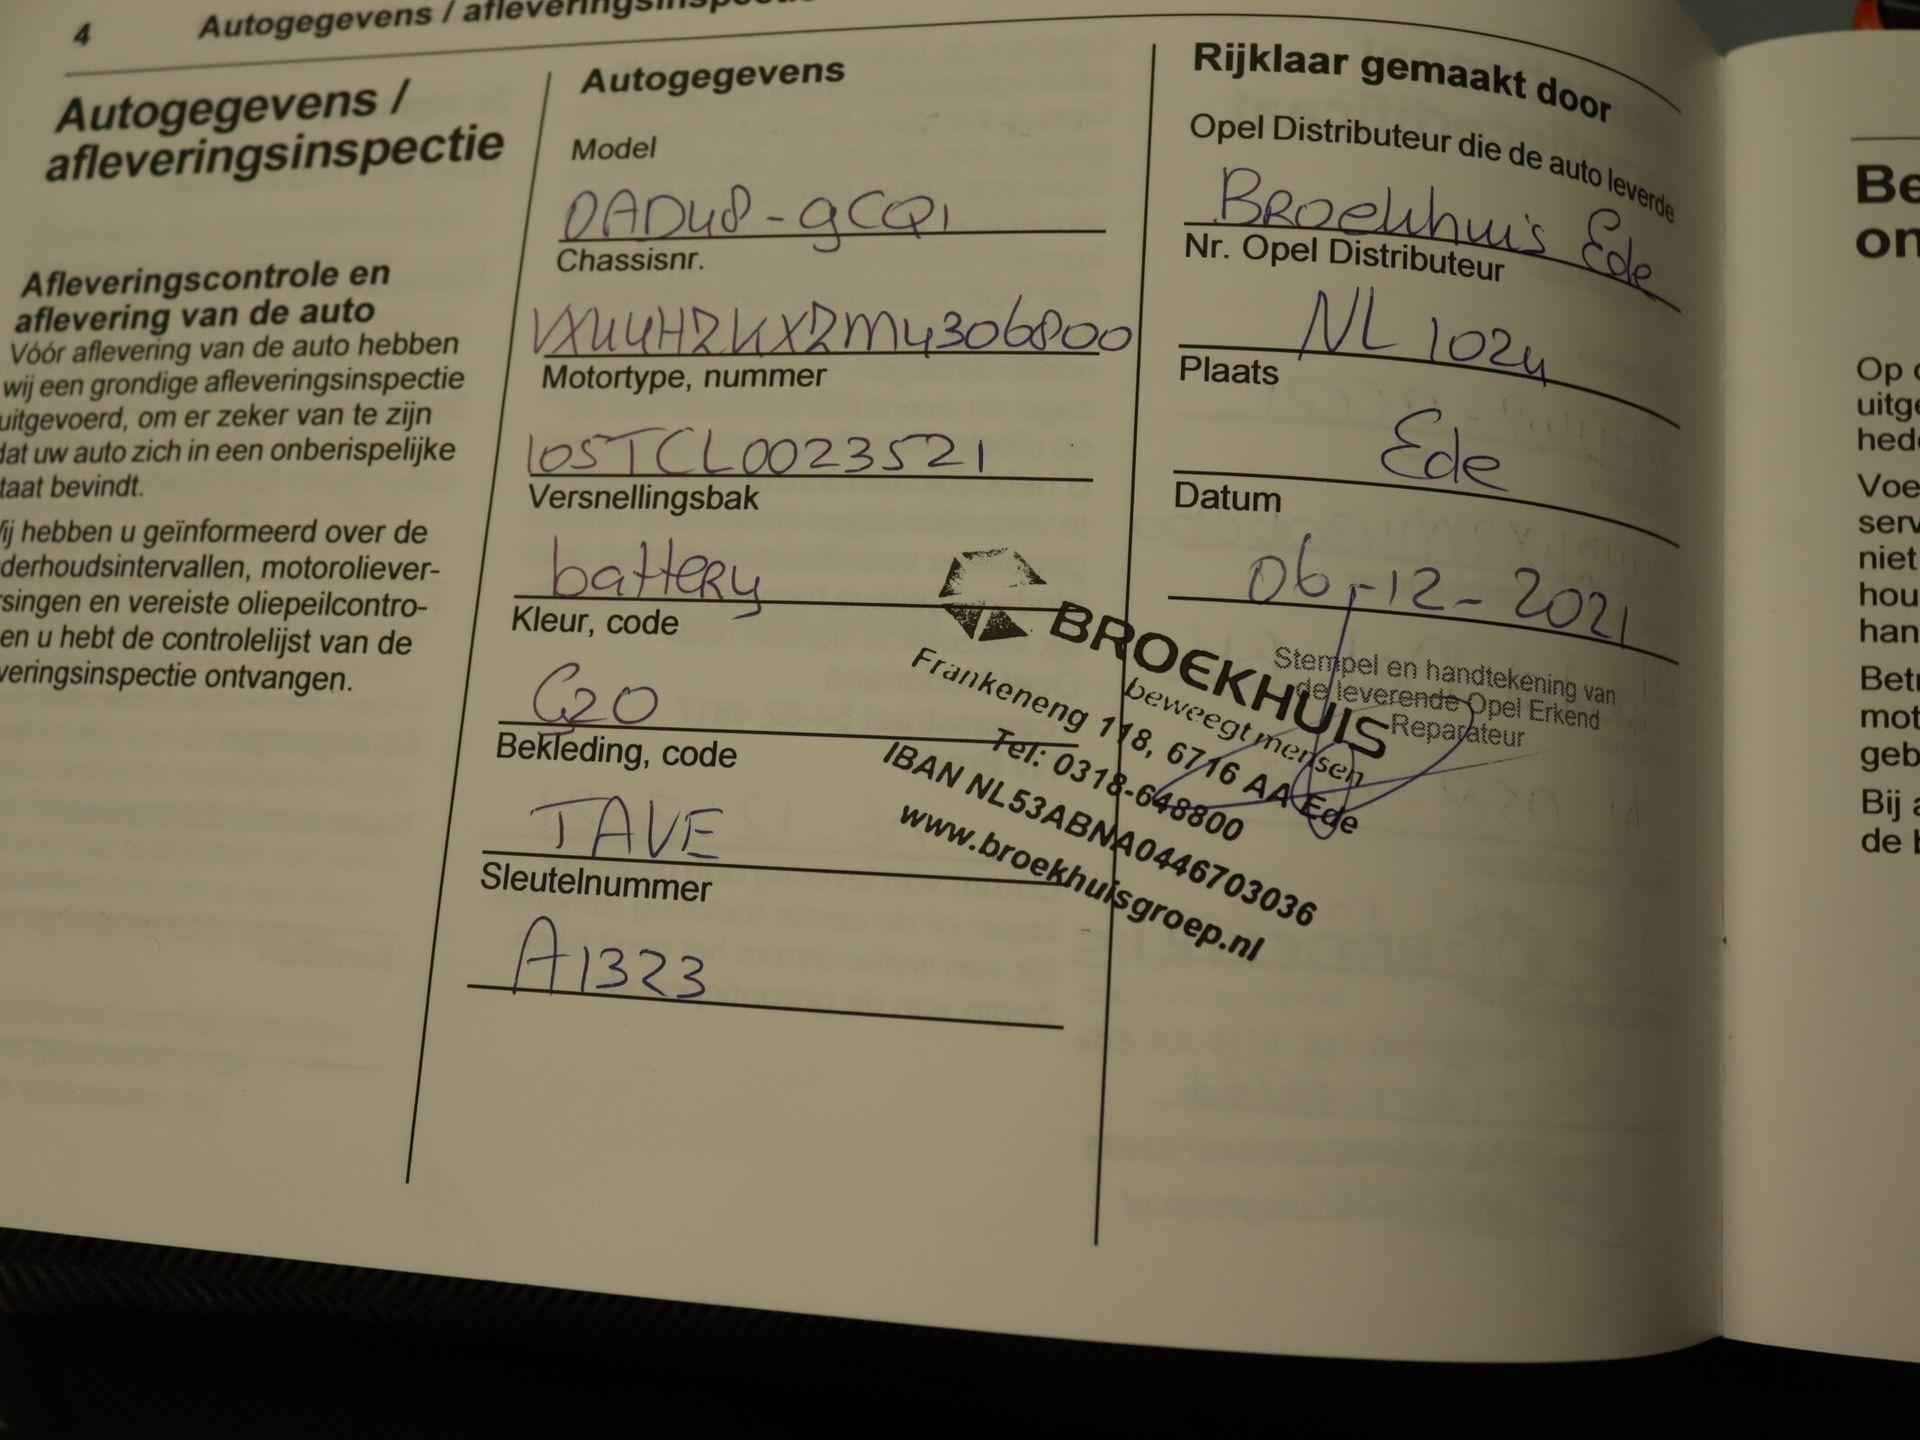 4 Autogegevens / afleveringsinspectie
Autogegevens /
afleveringsinspectie
Afleveringscontrole en
aflevering van de auto
Vóór aflevering van de auto hebben
wij een grondige afleveringsinspectie
uitgevoerd, om er zeker van te zijn
dat uw auto zich in een onberispelijke
taat bevindt.
ij hebben u geïnformeerd over de
derhoudsintervallen, motoroliever-
rsingen en vereiste oliepeilcontro-
en u hebt de controlelijst van de
veringsinspectie ontvangen.
Autogegevens
Model
0AD48-9CQ1
Chassisnr.
VXKUHZKXZM4306800
Motortype, nummer
105TCL0023521
Versnellingsbak
battery
Kleur, code
G20
Bekleding, code
TAVE
Sleutelnummer
A1323
Rijklaar gemaakt door
Opel Distributeur die de auto leverde
Broekhuis Ede
Nr. Opel Distributeur
NL 1024
Plaats
Ede
Datum
06-12-2021
Stempel en handtekening van
de leverende Opel Erkend
Reparateur
BROEKHUIS
beweegt mensen
Frankeneng 118, 6716 AA Ede
Tel: 0318-648800
IBAN NL53ABNA0446703036
www.broekhuisgroep.nl
Be
on
Op
uitge
hede
Voe
serv
niet
hou
han
Betr
mot
geb
Bij a
de b